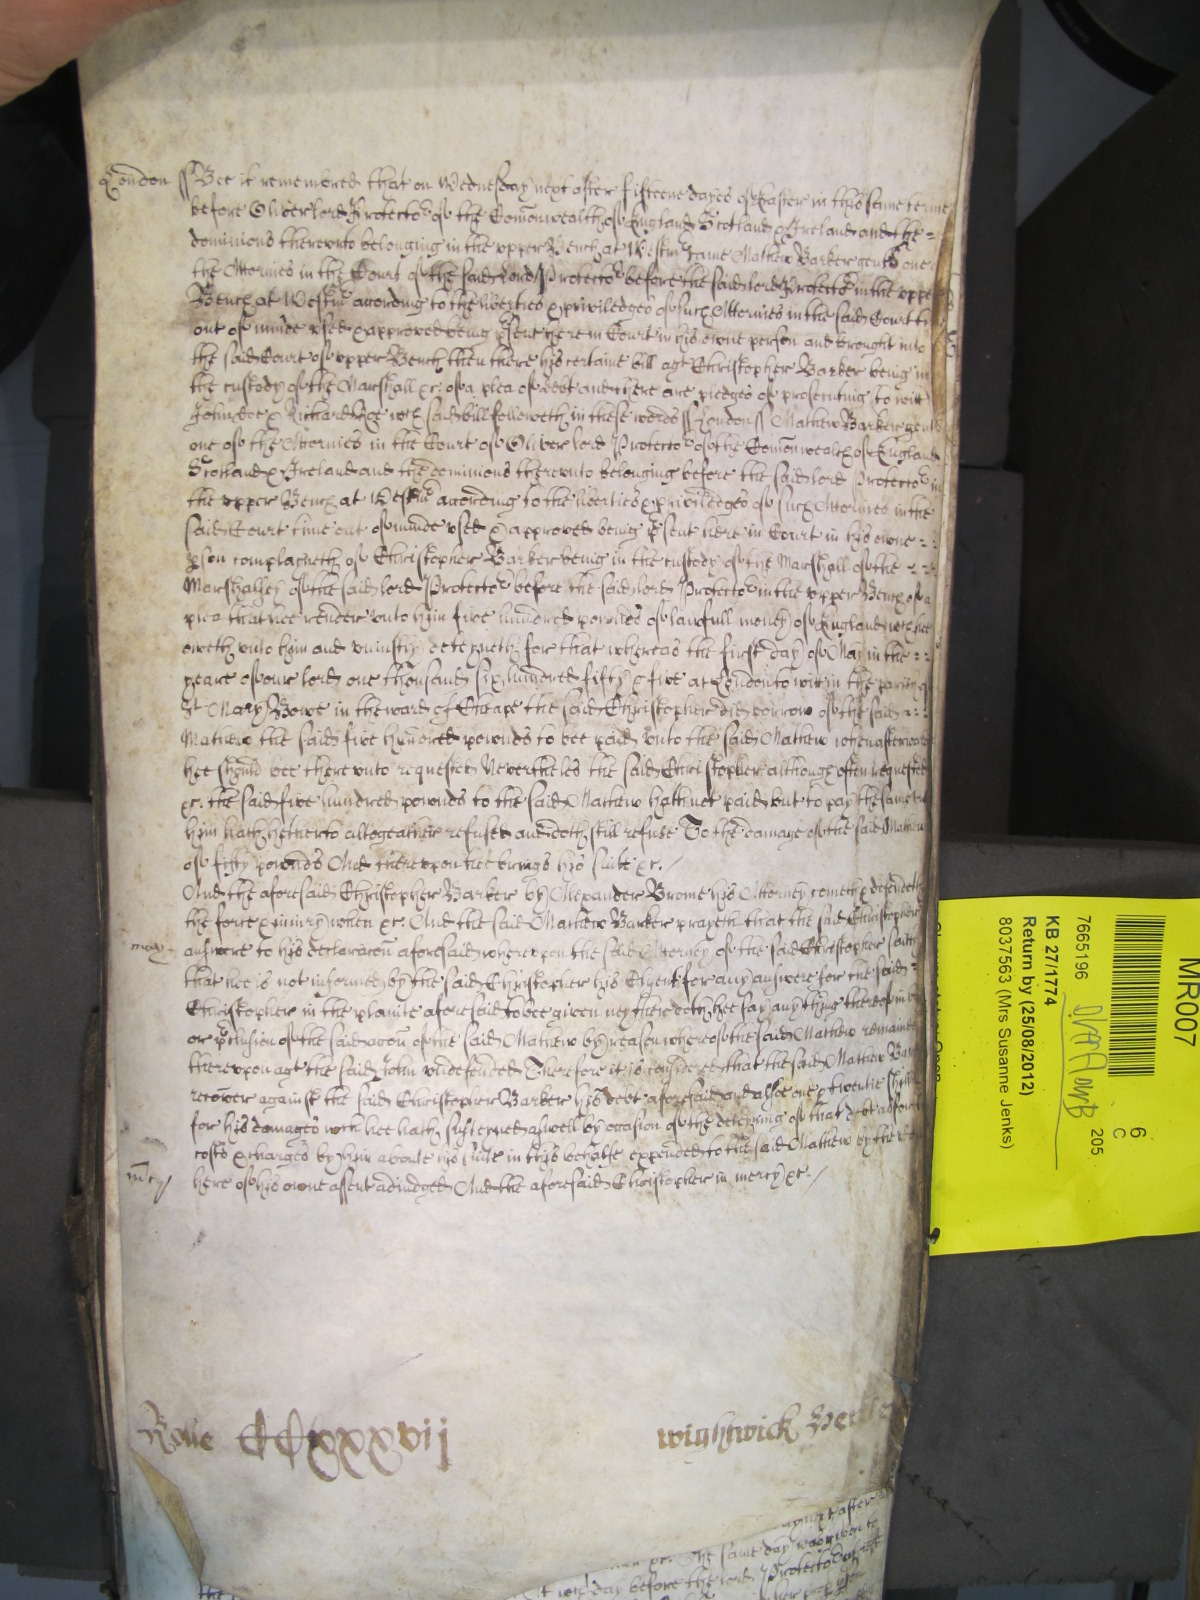 London ss Bee it remembred that on Wednesday next after fifteene dayes of Easter in this same terme
before Oliver lord Protector of the Com̄onwealth of England Scotland & Ireland and the =
dominions thereunto belonging in the upper Bench at Westmr came Mathew Barker gent one
the Attornies in the Court of the said lord Protector before the said lord Protector in the uppe
Bench at Westmr according to the liberties & priviledges of such Attornies in the said Court
out of minde used & approved being psent here in Court in his owne person and brought into
the said Court of upper Bench then there his certaine bill agt Christopher Barker being in
the custody of the Marshall &c. of a plea of debt and there are pledges of prosecuting to witt
John doe & Richard Roe wch said bill followeth in these words ss London ss Mathew Barker gent
one of the Attornies in the Court of Oliver lord Protector of the Com̄onwealth of England
Scotland & Ireland and the dominions thereunto belonging before the said lord Protector in
the upper Bench at Westmr according to the liberties & priviledges of such Attornies in the
said Court time out of minde used & approved being psent here in Court in his owne
pson complayneth of Christopher Barker being in the custody of the Marshall of the
Marshalsey of the said lord Protector before the said lord Protector in the upper Bench of a
plea that hee render unto him five hundred pounds of lawfull money of England wch hee
oweth unto him and uniustly deteyneth for that whereas the first day of May in the
yeare of our lord one thousand six hundred fifty & five at London to witt in the parish of
St Mary Bowe in the ward of Cheape the said Christopher did borrow of the said
Mathew the said five hundred pounds to bee paid unto the said Mathew when afterward
hee should bee thereunto requested Neverthelesse the said Christopher although often requested
&c. the said five hundred pounds to the said Mathew hath not paid but to pay the same to
him hath hetherto altogeather refused and doth still refuse To the damage of the said Mathew
of fifty pounds And thereupon hee brings his suite &c. /
And the aforesaid Christopher Barker by Alexander Brome his Attorney cometh & defendeth
the force & iniury when &c. And the said Mathew Barker prayeth that the said Christopher
answere to his declaracon aforesaid whereupon the said Attorney of the said Christopher saith
that hee is not informed by the said Christopher his Clyent for any answere for the said
Christopher in the plainte aforesaid to bee given neyther doth hee say any thing thereof in barr
or pclusion of the said accon of the said Mathew by reason whereof the said Mathew remaineth
thereupon agt the said John undefended Therefore it is considered that the said Mathew Bar
recover against the said Christopher Barker his debt aforesaid and alsoe one & twentie shill
for his damages wch hee hath susteyned aswell by occasion of the deteyning of that debt as for
costs & charges by him about his suite in this behalfe expended to the said Mathew by the
mcy here of his owne assent adiudged And the aforesaid Christopher in mercy &c. /
Rolle CCxxxvij
wightwick
ay next after
&c. The same day
day before the lord Protector
MR007
6
C
205.
7665196
KB 27/1774
Return by (25/08/2012)
8037563 (Mrs Susanne Jenks)